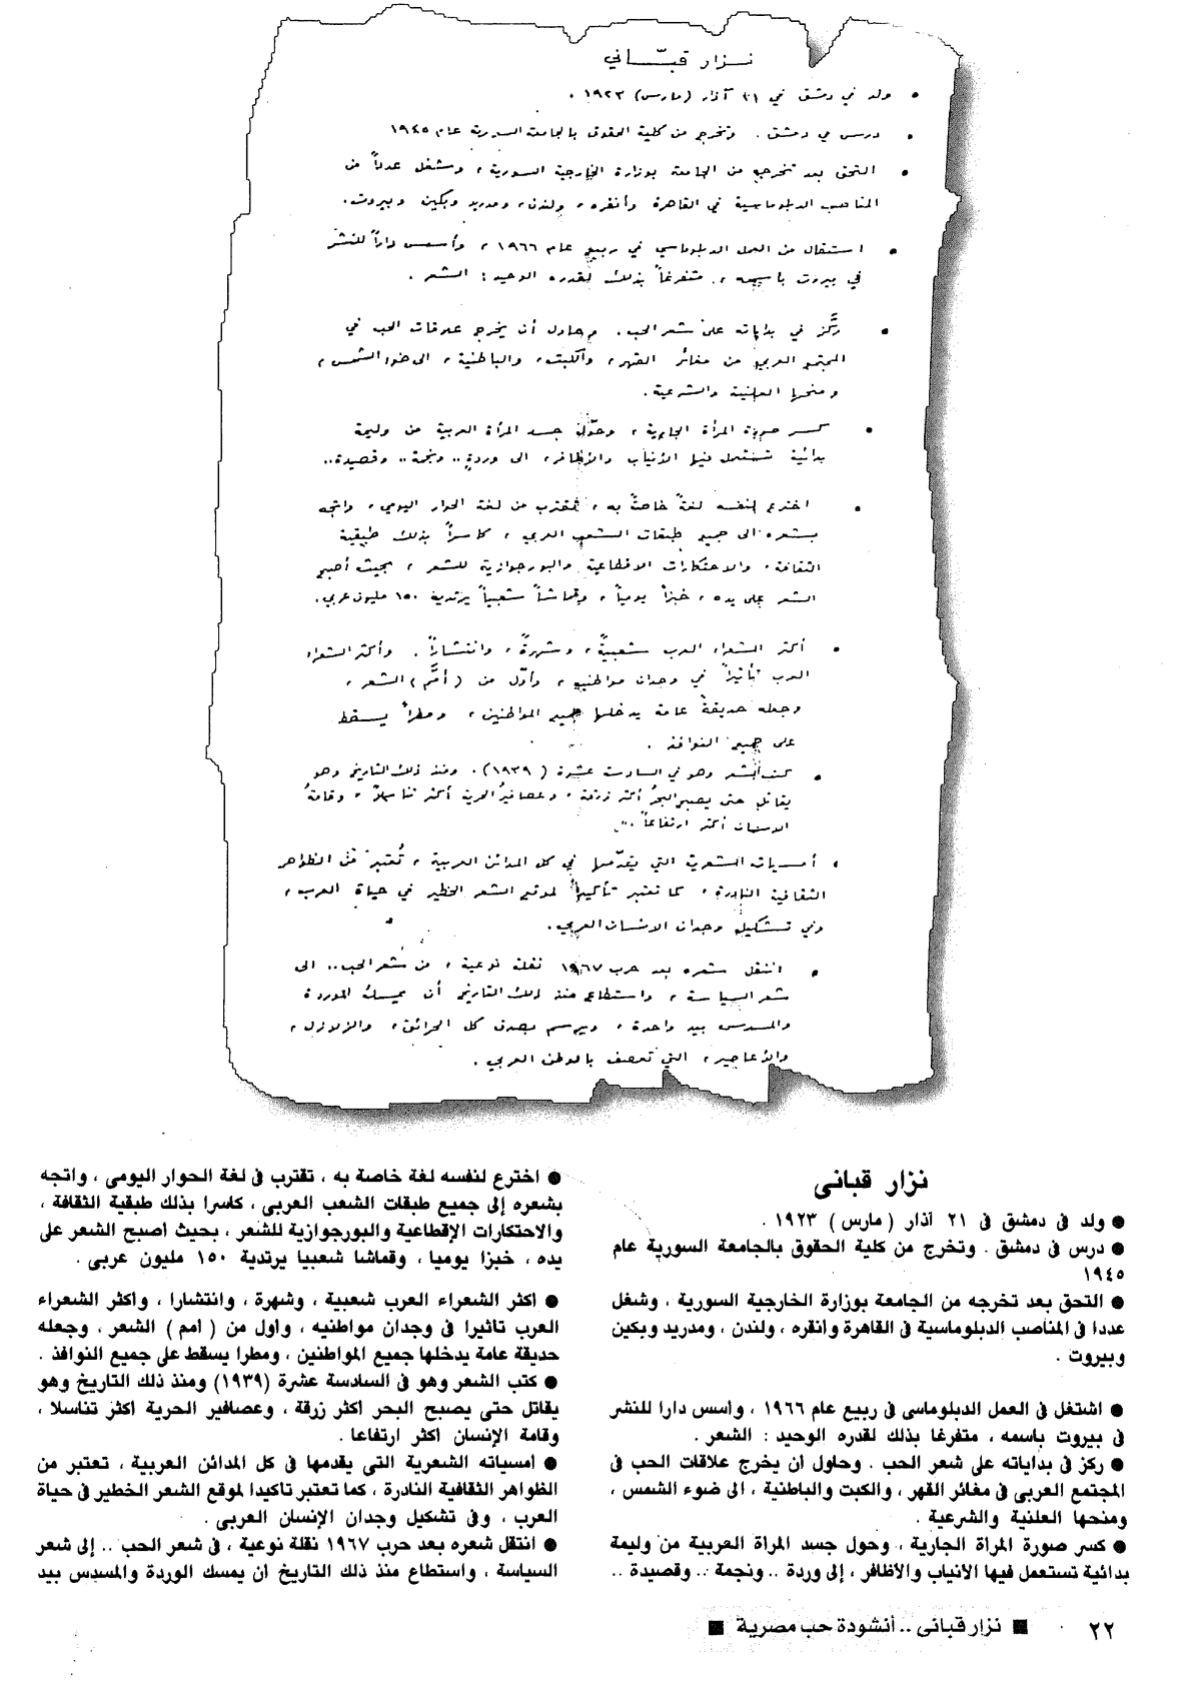 نزار قبّاني
• ولد في دمشق في ٢١ آذار (مارس) ١٩٢٣ .
• درس في دمشق . وتخرج من كلية الحقوق بالجامعة السورية عام ١٩٤٥
• التحق بعد تخرجه من الجامعة بوزارة الخارجية السورية ، وشغل عدداً من
المناصب الدبلوماسية في القاهرة وأنقره ، ولندن ، ومدريد وبكين وبيروت .
• استقال من العمل الدبلوماسي في ربيع عام ١٩٦٦ ، وأسس داراً للنشر
في بيروت باسمه ، متفرغاً بذلك لقدره الوحيد : الشعر .
• ركَّز في بداياته على شعر الحب . وحاول أن يخرج علاقات الحب في
المجتمع العربي من مغائر القهر ، والكبت ، والباطنية ، الى ضوء الشمس ،
ومنحها العلنية والشرعية .
• كسر صورة المرأة الجارية ، وحوّل جسد المرأة العربية من وليمة
بدائية تستعمل فيها الأنياب والأظافر ، الى وردةٍ .. ونجمة .. وقصيدة ..
• اخترع لنفسه لغةً خاصةً به ، تقترب من لغة الحوار اليومي ، واتجه
بشعره الى جميع طبقات الشعب العربي ، كاسراً بذلك طبقية
الثقافة ، والاحتكارات الاقطاعية والبورجوازية للشعر ، بحيث أصبح
الشعر على يده ، خبزاً يومياً ، وقماشاً شعبياً يرتديه ١٥٠ مليون عربي .
• أكثر الشعراء العرب شعبيةً ، وشهرةً ، وانتشاراً . وأكثر الشعراء
العرب تأثيراً في وجدان مواطنيه ، وأوّل من (أمَّم) الشعر ،
وجعله حديقةً عامة يدخلها جميع المواطنين ، ومطراً يسقط
على جميع النوافذ .
• كتب الشعر وهو في السادسة عشرة (١٩٣٩) . ومنذ ذلك التاريخ وهو
يقاتل حتى يصبح البحرُ أكثر زرقة ، وعصافيرُ الحرية أكثر تناسلاً ، وقامةُ
الانسان أكثر ارتفاعاً .
• أمسياته الشعرية التي يقدّمها في كل المدائن العربية ، تُعتبر من الظواهر
الثقافية النادرة ، كما تعتبر تأكيداً لموقع الشعر الخطير في حياة العرب ،
وفي تشكيل وجدان الانسان العربي .
• انتقل شعره بعد حرب ١٩٦٧ نقلة نوعية ، من شعر الحب .. الى
شعر السياسة ، واستطاع منذ ذلك التاريخ أن يمسك الوردة
والمسدس بيد واحدة ، ويرسم بصدق كل الحرائق ، والزلازل ،
والأعاصير ، التي تعصف بالوطن العربي .
نزار قبانى
● ولد فى دمشق فى ٢١ آذار ( مارس ) ١٩٢٣ .
● درس فى دمشق . وتخرج من كلية الحقوق بالجامعة السورية عام
١٩٤٥
● التحق بعد تخرجه من الجامعة بوزارة الخارجية السورية ، وشغل
عددا فى المناصب الدبلوماسية فى القاهرة وأنقره ، ولندن ، ومدريد وبكين
وبيروت .
● اشتغل فى العمل الدبلوماسى فى ربيع عام ١٩٦٦ ، وأسس دارا للنشر
فى بيروت باسمه ، متفرغا بذلك لقدره الوحيد : الشعر .
● ركز فى بداياته على شعر الحب . وحاول أن يخرج علاقات الحب فى
المجتمع العربى فى مغائر القهر ، والكبت والباطنية ، الى ضوء الشمس ،
ومنحها العلنية والشرعية .
● كسر صورة المرأة الجارية ، وحول جسد المرأة العربية من وليمة
بدائية تستعمل فيها الأنياب والأظافر ، إلى وردة .. ونجمة .. وقصيدة ..
● اخترع لنفسه لغة خاصة به ، تقترب فى لغة الحوار اليومى ، واتجه
بشعره إلى جميع طبقات الشعب العربى ، كاسرا بذلك طبقية الثقافة ،
والاحتكارات الإقطاعية والبورجوازية للشعر ، بحيث أصبح الشعر على
يده ، خبزا يوميا ، وقماشا شعبيا يرتدية ١٥٠ مليون عربى .
● أكثر الشعراء العرب شعبية ، وشهرة ، وانتشارا ، وأكثر الشعراء
العرب تأثيرا فى وجدان مواطنيه ، وأول من ( أمم ) الشعر ، وجعله
حديقة عامة يدخلها جميع المواطنين ، ومطرا يسقط على جميع النوافذ .
● كتب الشعر وهو فى السادسة عشرة (١٩٣٩) ومنذ ذلك التاريخ وهو
يقاتل حتى يصبح البحر أكثر زرقة ، وعصافير الحرية أكثر تناسلا ،
وقامة الإنسان أكثر ارتفاعا .
● أمسياته الشعرية التى يقدمها فى كل المدائن العربية ، تعتبر من
الظواهر الثقافية النادرة ، كما تعتبر تأكيدا لموقع الشعر الخطير فى حياة
العرب ، وفى تشكيل وجدان الإنسان العربى .
● انتقل شعره بعد حرب ١٩٦٧ نقلة نوعية ، فى شعر الحب .. إلى شعر
السياسة ، واستطاع منذ ذلك التاريخ أن يمسك الوردة والمسدس بيد
٢٢ ■ نزار قبانى .. أنشودة حب مصرية ■